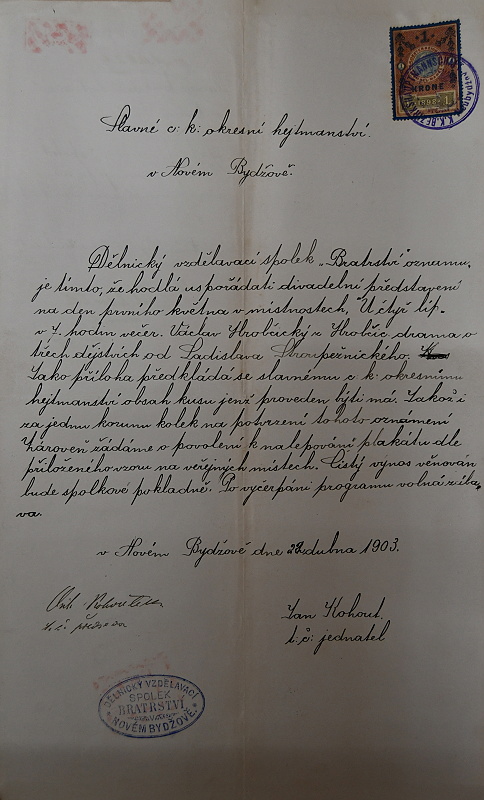 1
KRONE
1898
Slavné c: k: okresní hejtmanství.
v Novém Bydžově.
Dělnický vzdělavací spolek „Bratrství" oznamu,
je tímto, že hodlá uspořádati divadelní představení
na den prvního května v místnostech, „U čtyř lip.
v 7. hodin večer. Václav Hrobčický z Hrobčic drama o
třech dějstvích od Ladislava Stroupežnického.
Jako příloha předkládá se slavnému c: k: okresnímu
hejtmanství obsah kusu jenž proveden býti má. Jakož i
za jednu korunu kolek na potvrzení tohoto oznámení
Zároveň žádáme o povolení k nalepování plakátu dle
přiloženého vzoru na veřejných místech. Čistý výnos věnován
bude spolkové pokladně. Po vyčerpání programu volná zába,
va.
v Novém Bydžově dne 22 dubna 1903.
Ant. Kohoutek
t. č. předseda
Jan Kohout.
t: č: jednatel
DĚLNICKÝ VZDĚLAVACÍ
SPOLEK
BRATRSTVÍ
NOVÉM BYDŽOVĚ